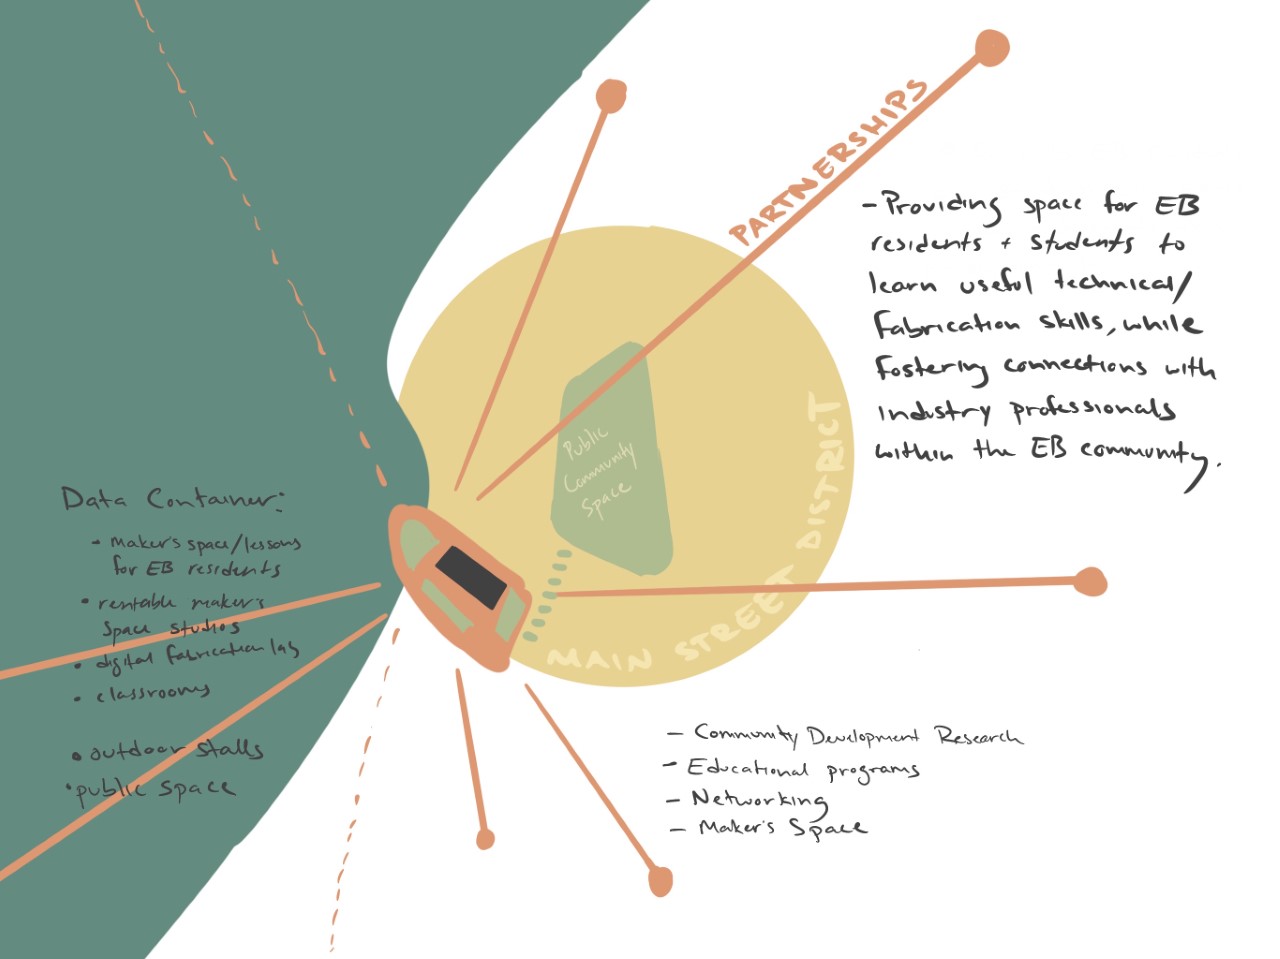 PARTNERSHIPS
- Providing space for EB
residents + students to
learn useful technical/
fabrication skills, while
fostering connections with
industry professionals
within the EB community.
Public
Community
Space
MAIN STREET DISTRICT
Data Container:
- maker's space/lessons
for EB residents
• rentable maker's
space studios
• digital fabrication lab
• classrooms
• outdoor stalls
• public space
- Community Development Research
- Educational programs
- Networking
- Maker's Space